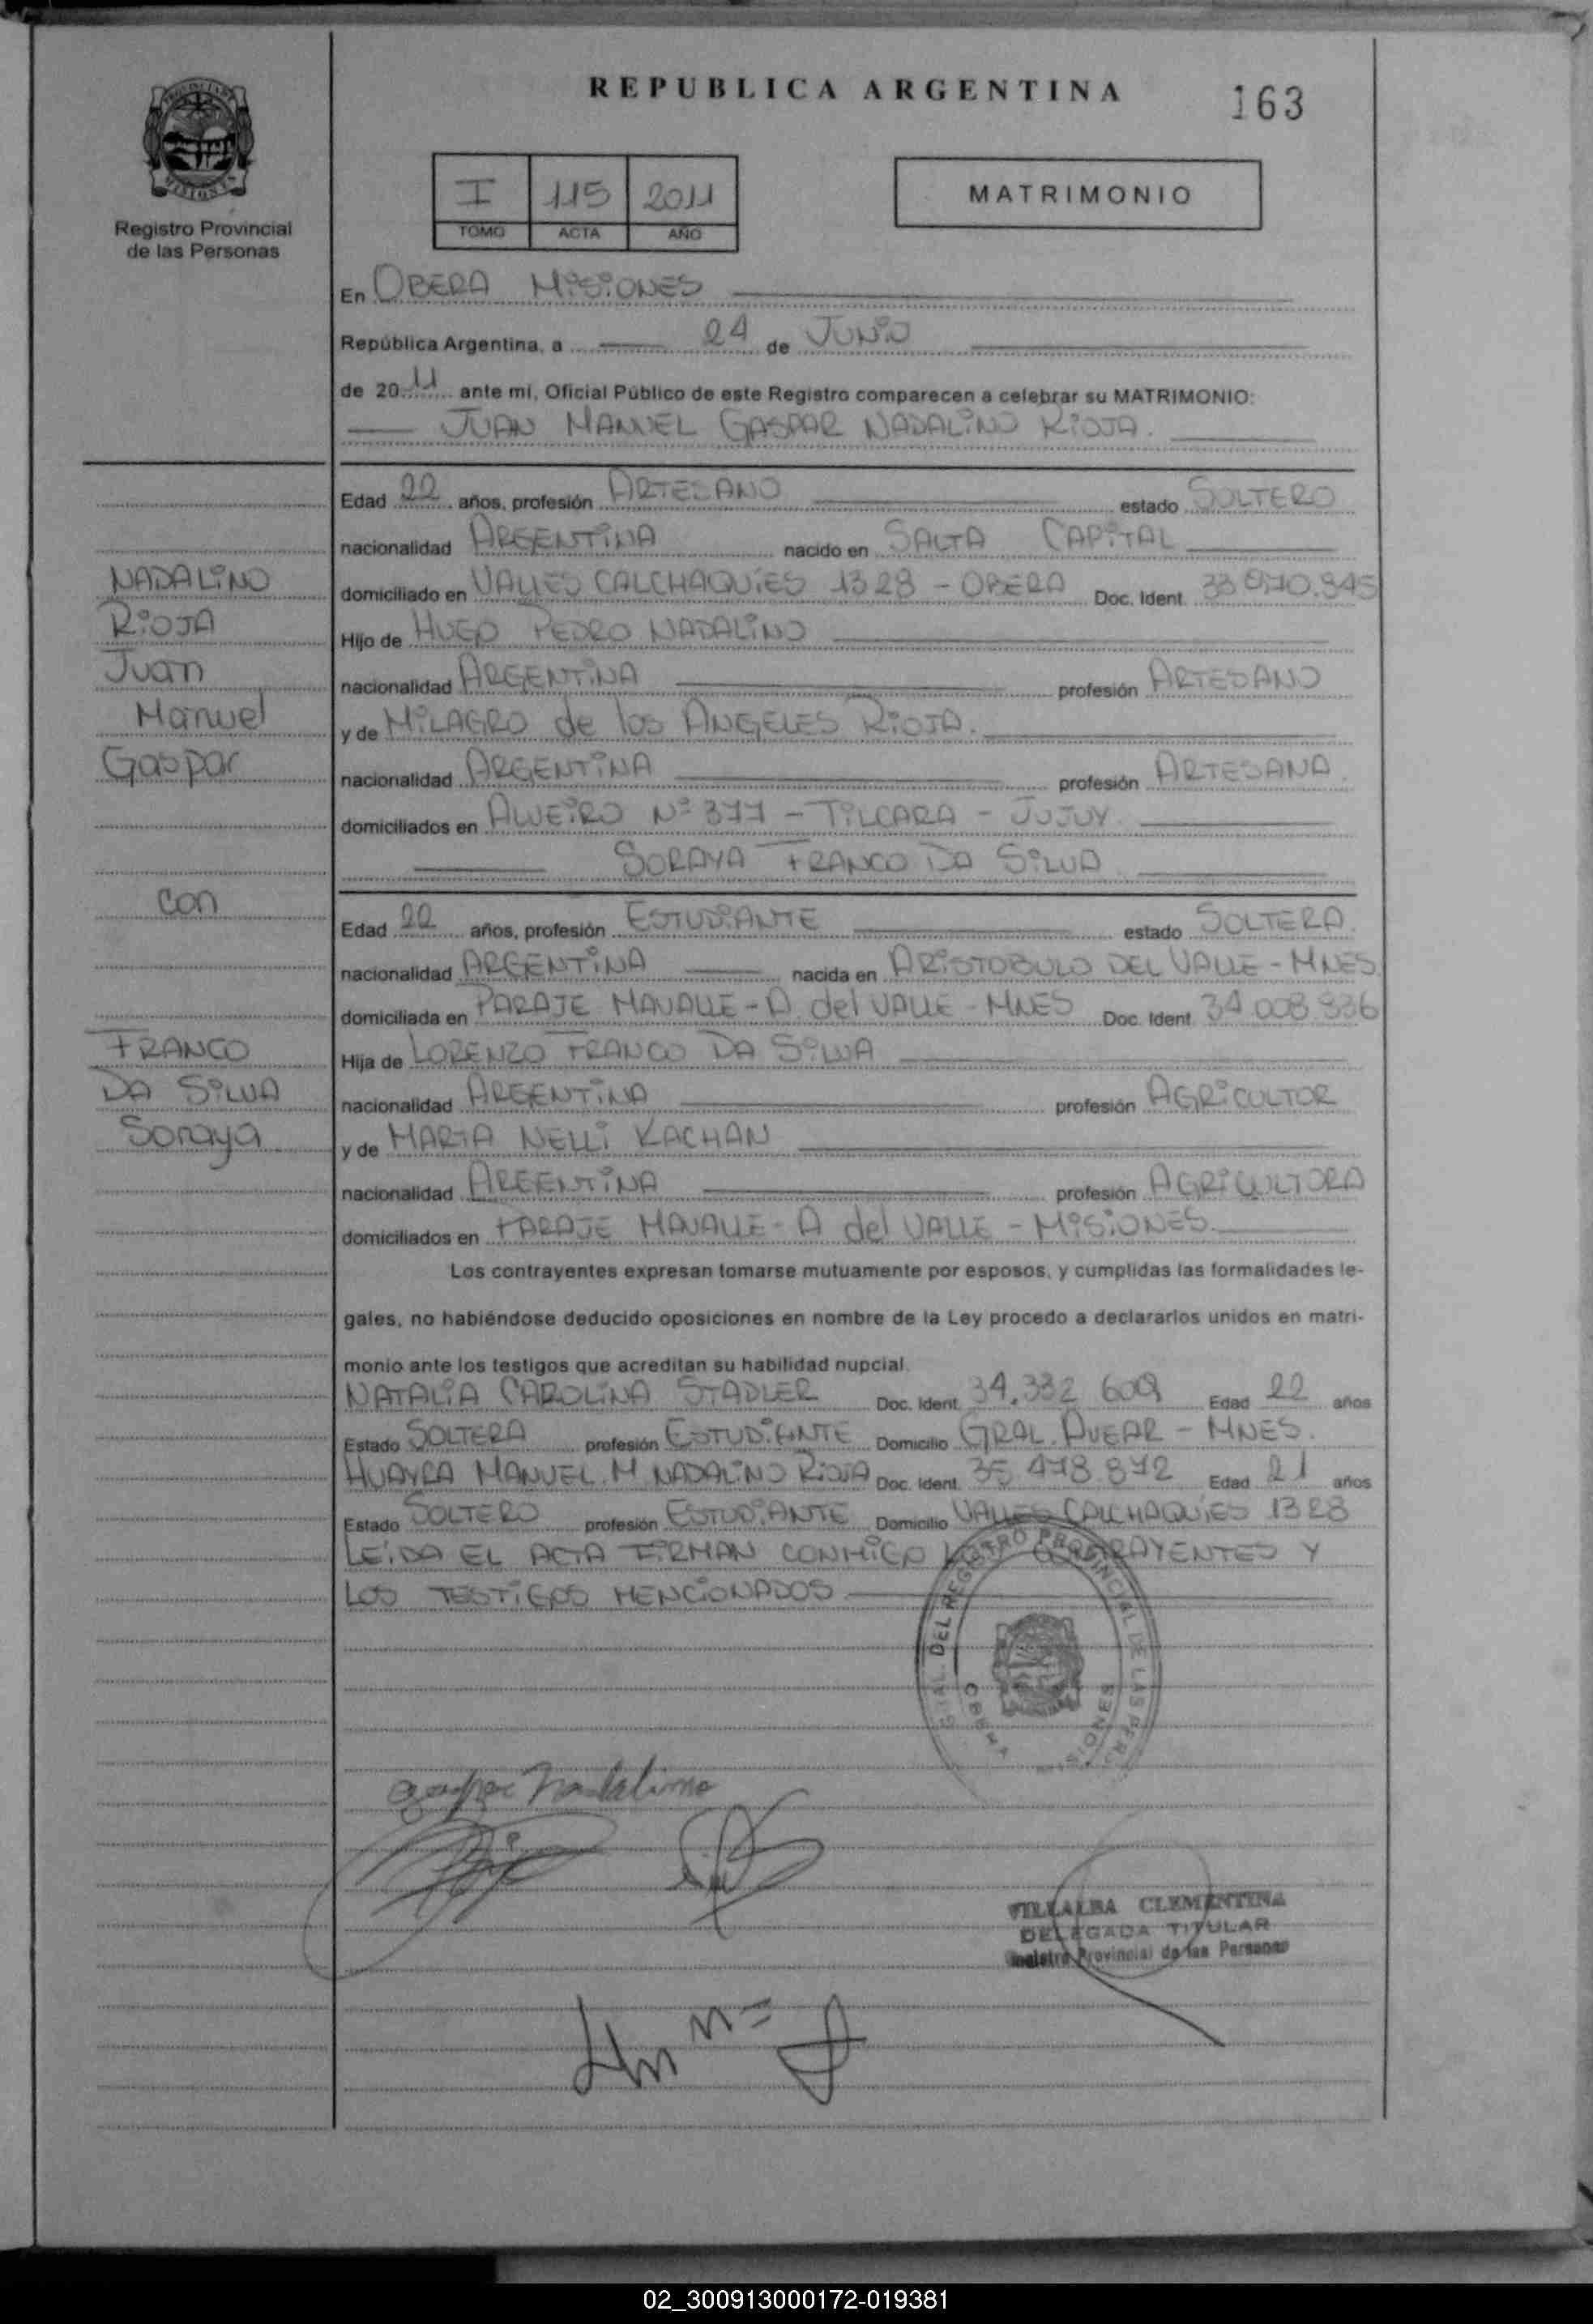 REPUBLICA ARGENTINA
163
Registro Provincial
de las Personas
I 115 2011
TOMO ACTA AÑO
MATRIMONIO
En OBERA MISIONES
República Argentina, a 24 de JUNIO
de 2011 ante mi, Oficial Público de este Registro comparecen a celebrar su MATRIMONIO:
JUAN MANUEL GASPAR NADALINO RIOJA.
Edad 22 años, profesión ARTESANO estado SOLTERO
nacionalidad ARGENTINA nacido en SALTA CAPITAL
domiciliado en VALLES CALCHAQUIES 1328 - OBERA Doc. Ident.
Hijo de HUGO PEDRO NADALINO
nacionalidad ARGENTINA profesión ARTESANO
y de MILAGRO de los ANGELES RIOJA.
nacionalidad ARGENTINA profesión ARTESANA.
domiciliados en Nº 377 - TILCARA - JUJUY.
SORAYA FRANCO DA SILVA
NADALINO
RIOJA
Juan
Manuel
Gaspar
con
FRANCO
DA SILVA
Soraya
Edad 22 años, profesión ESTUDIANTE estado SOLTERA.
nacionalidad ARGENTINA nacida en ARISTOBULO DEL VALLE - MNES
domiciliada en PARAJE - A. del VALLE - MNES Doc. Ident. 34 008 936
Hija de LORENZO FRANCO DA SILVA
nacionalidad ARGENTINA profesión AGRICULTOR
y de MARIA NELLI KACHAN
nacionalidad ARGENTINA profesión AGRICULTORA
domiciliados en PARAJE - A del VALLE - MISIONES
Los contrayentes expresan tomarse mutuamente por esposos, y cumplidas las formalidades le-
gales, no habiéndose deducido oposiciones en nombre de la Ley procedo a declararlos unidos en matri-
monio ante los testigos que acreditan su habilidad nupcial.
NATALIA CAROLINA STADLER Doc. Ident. 34.332 609 Edad 22 años
Estado SOLTERA profesión ESTUDIANTE Domicilio GRAL. ALVEAR - MNES.
HUAYRA MANUEL. M. NADALINO RIOJA Doc. Ident. 35 478 872 Edad 21 años
Estado SOLTERO profesión ESTUDIANTE Domicilio VALLES CALCHAQUIES 1328
LEIDA EL ACTA FIRMAN CONMIGO LOS CONTRAYENTES Y
LOS TESTIGOS MENCIONADOS
DEL REGISTRO PROVINCIAL DE LAS PERS
OBERA MISIONES
VILLALBA CLEMENTINA
DELEGADA TITULAR
Registro Provincial de las Personas
02_300913000172-019381